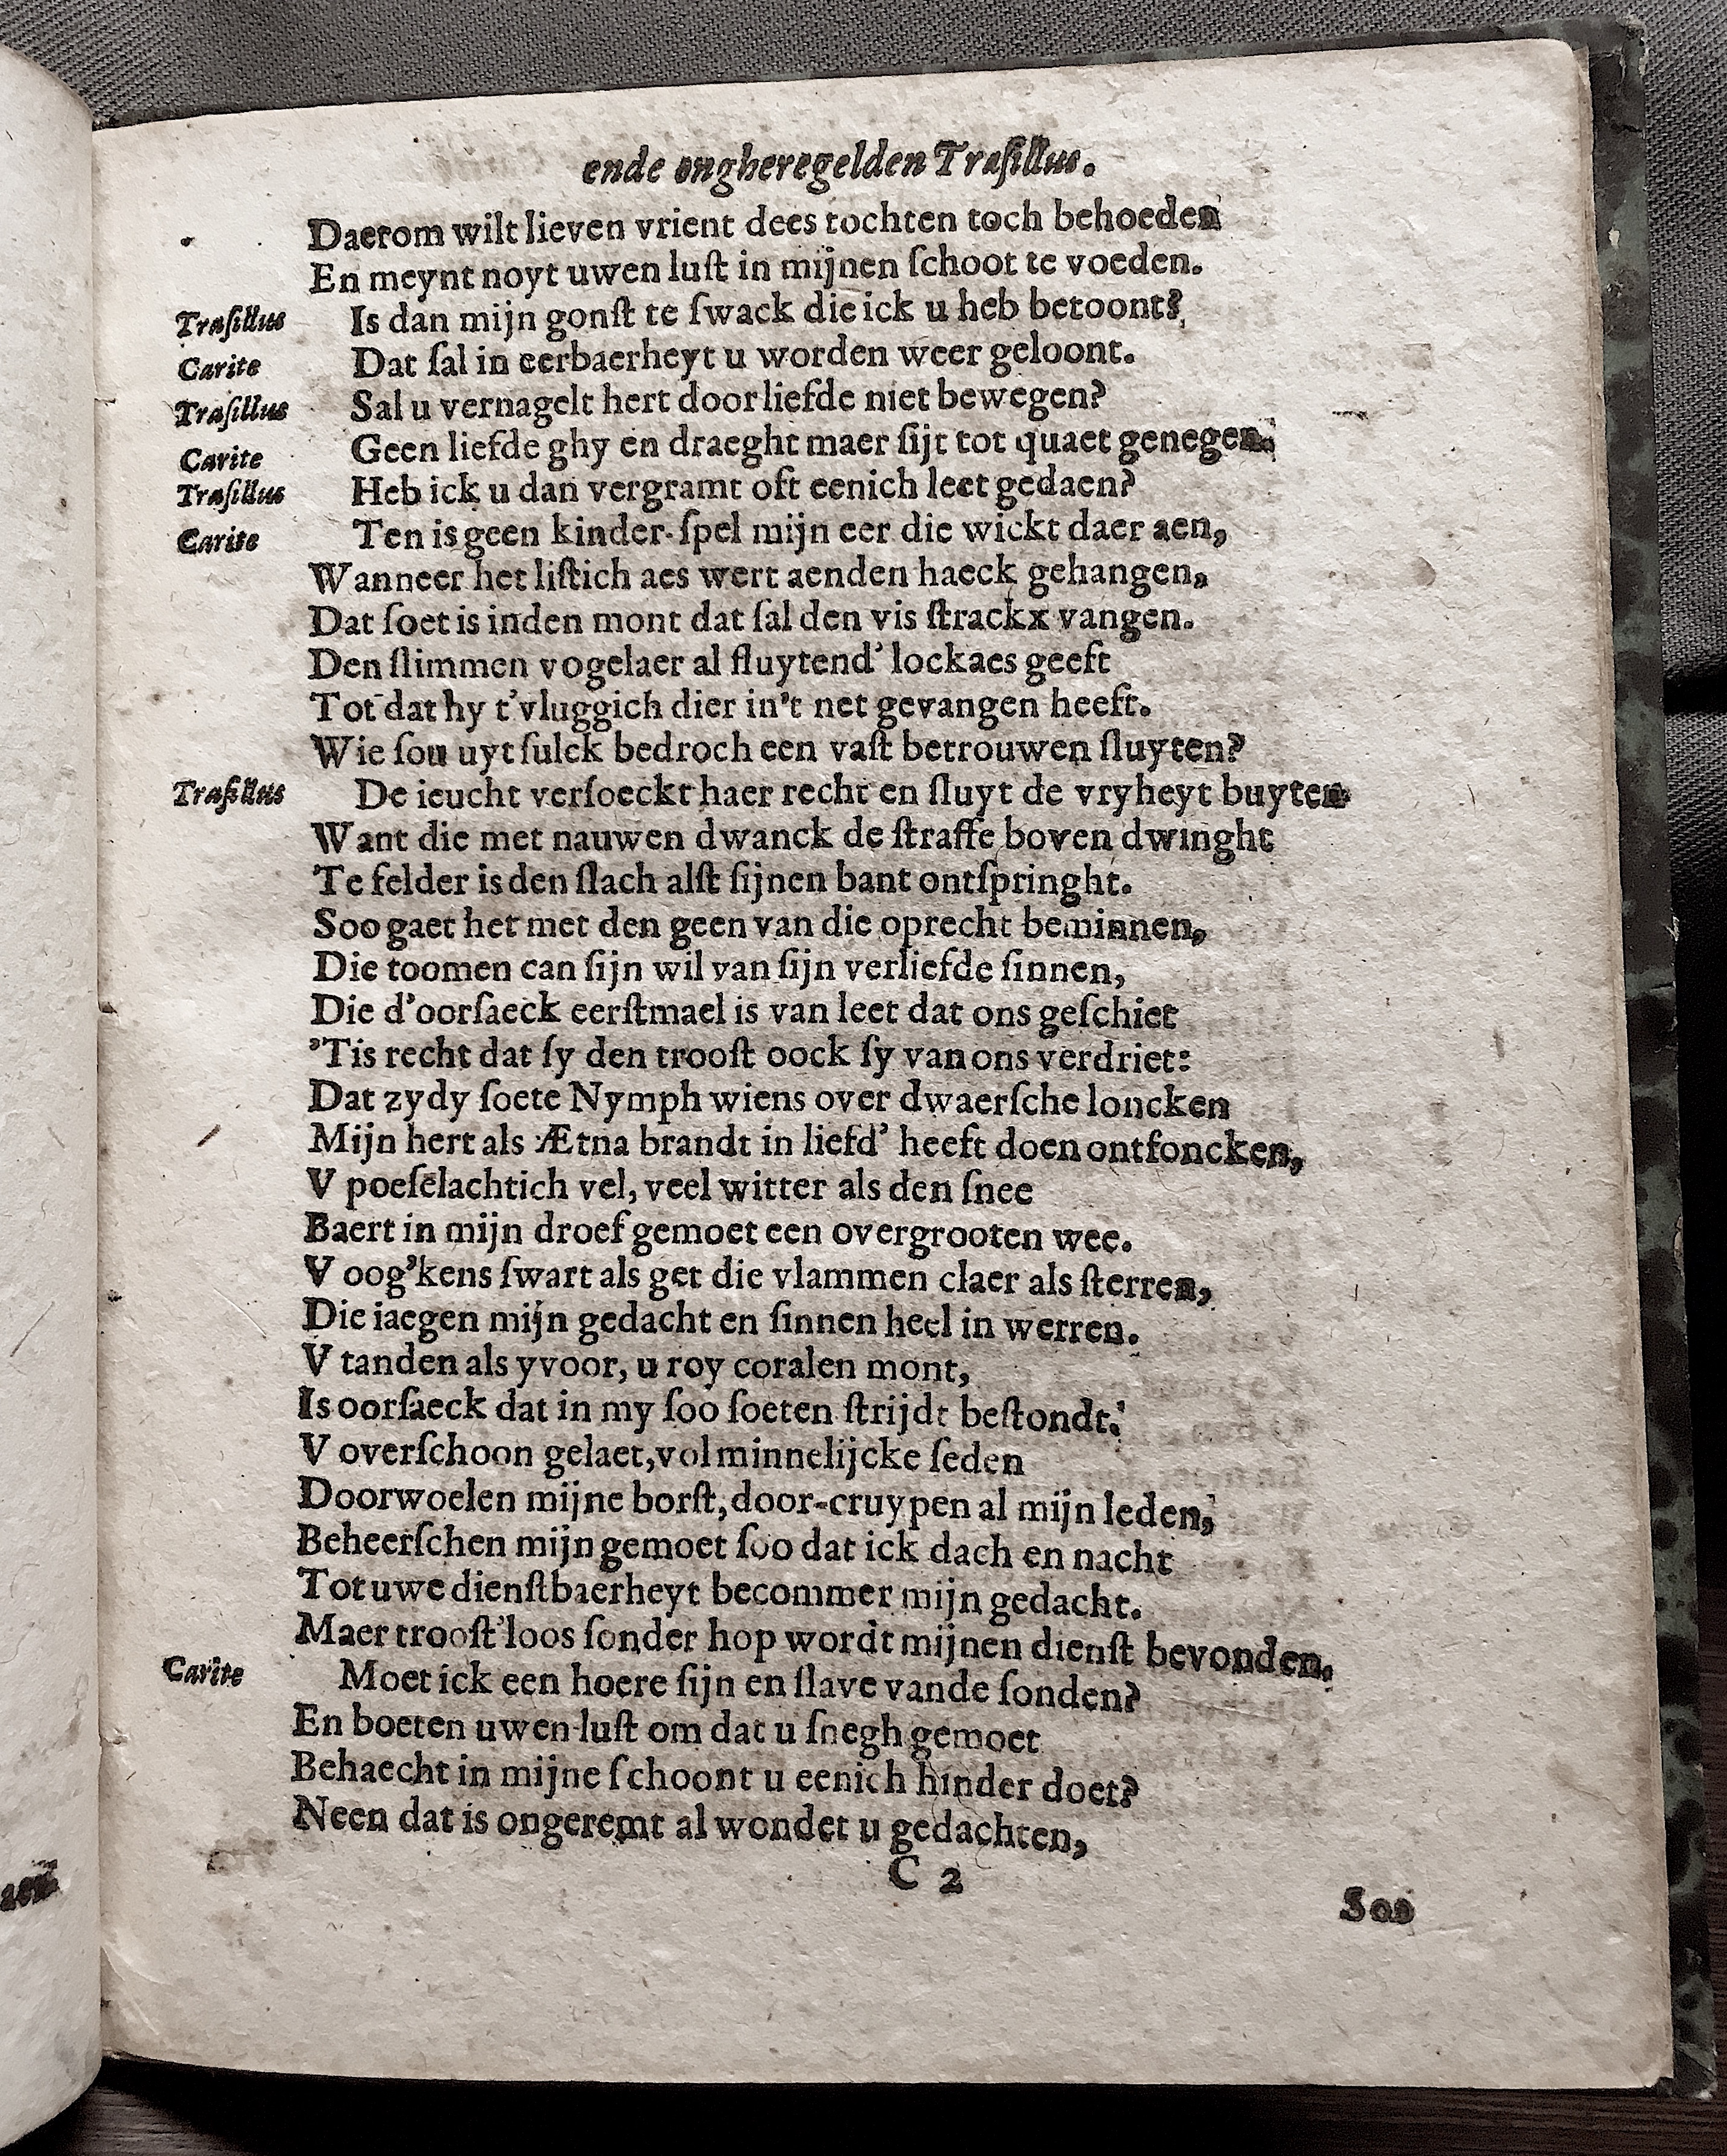 ende ongheregelden Traſillus.
Daerom wilt lieven vrient dees tochten toch behoeden
En meynt noyt uwen luſt in mijnen ſchoot te voeden.
Traſillus Is dan mijn gonſt te ſwack die ick u heb betoont?
Carite Dat ſal in eerbaerheyt u worden weer geloont.
Traſillus Sal u vernagelt hert door liefde niet bewegen?
Carite Geen liefde ghy en draeght maer ſijt tot quaet genegen.
Traſillus Heb ick u dan vergramt oft eenich leet gedaen?
Carite Ten is geen kinder-ſpel mijn eer die wickt daer aen,
Wanneer het liſtich aes wert aenden haeck gehangen,
Dat ſoet is inden mont dat ſal den vis ſtrackx vangen.
Den ſlimmen vogelaer al fluytend' lockaes geeft
Tot dat hy t'vluggich dier in't net gevangen heeft.
Wie ſou uyt ſulck bedroch een vaſt betrouwen ſluyten?
Traſillus De ieucht verſoeckt haer recht en ſluyt de vryheyt buyten
Want die met nauwen dwanck de ſtraffe boven dwinght
Te felder is den ſlach alſt ſijnen bant ontſpringht.
Soo gaet het met den geen van die oprecht beminnen,
Die toomen can ſijn wil van ſijn verliefde ſinnen,
Die d'oorſaeck eerſtmael is van leet dat ons geſchiet
'Tis recht dat ſy den trooſt oock ſy van ons verdriet:
Dat zydy ſoete Nymph wiens over dwaerſche loncken
Mijn hert als Ætna brandt in liefd' heeft doen ontfoncken,
V poeſelachtich vel, veel witter als den ſnee
Baert in mijn droef gemoet een overgrooten wee.
V oog'kens ſwart als get die vlammen claer als ſterren,
Die iaegen mijn gedacht en ſinnen heel in werren.
V tanden als yvoor, u roy coralen mont,
Is oorſaeck dat in my ſoo ſoeten ſtrijdt beſtondt.
V overſchoon gelaet, vol minnelijcke ſeden
Doorwoelen mijne borſt, door-cruypen al mijn leden,
Beheerſchen mijn gemoet ſoo dat ick dach en nacht
Tot uwe dienſtbaerheyt becommer mijn gedacht.
Maer trooſt'loos ſonder hop wordt mijnen dienſt bevonden.
Carite Moet ick een hoere ſijn en ſlave vande ſonden?
En boeten uwen luſt om dat u ſnegh gemoet
Behaecht in mijne ſchoont u eenich hinder doet?
Neen dat is ongeremt al wondet u gedachten,
C 2
Soo